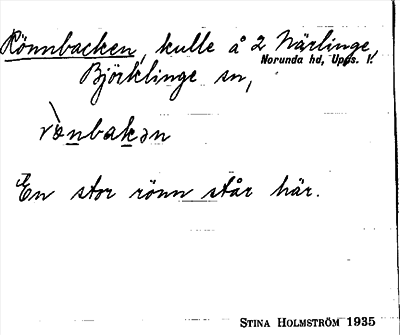 Rönnbacken, kulle å 2 Närlinge,
Norunda hd, Upps. l.
Björklinge sn,
rænbakən
En stor rönn står här.
STINA HOLMSTRÖM 1935